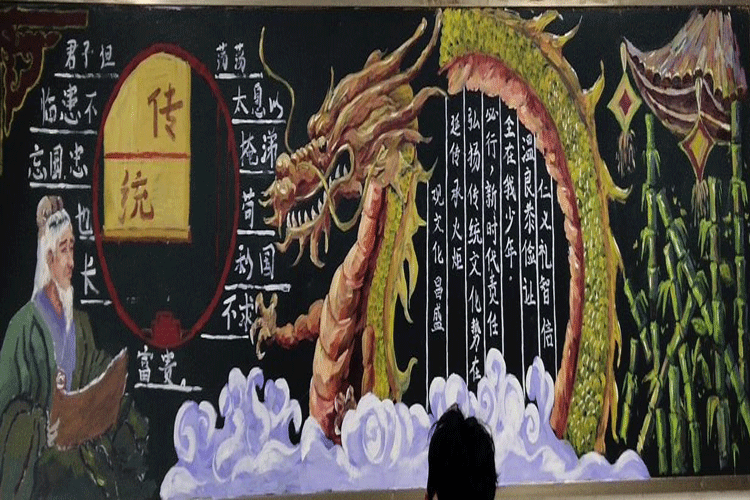 传
统
君子·但
荡荡
临患不
忘国忠
也
长
太息以
掩涕
苟
利国
不求
富贵。
仁义礼智信
温良恭俭让
全在我少年.
必行，新时代责任
弘扬传统文化势在
延传承火炬
观文化昌盛